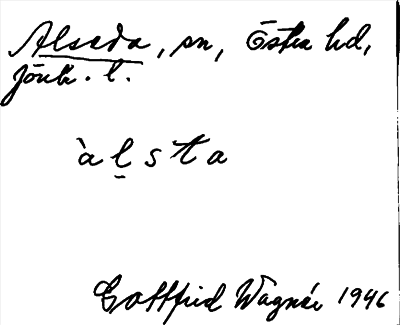 Alseda, sn, Östra hd,
Jönk. l.
àḻsta
Gottfrid Wagnér 1946